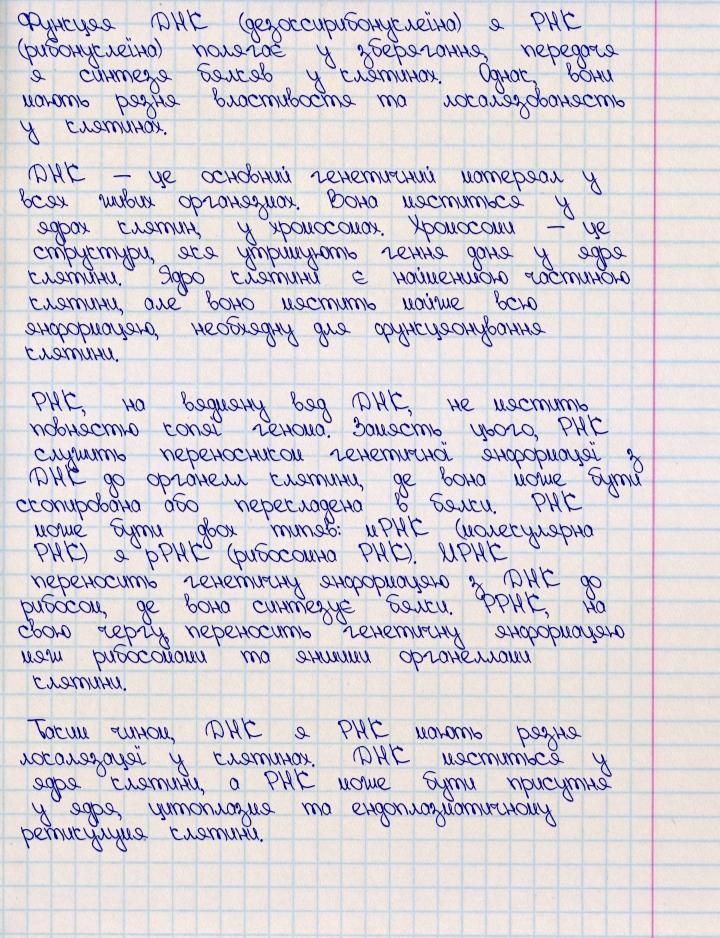 Функцяя ДНК (дезоксирибонуклеїна) я РНК
(рибонуклеїна) полягає у зберягання, передачя
я синтезя бялкяв у клятинах. Однак, вони
мають рязня властивостя та локалязованясть
у клятинах.
ДНК — це основний генетичний матеряал у
всях живих органязмах. Вона мяститься у
ядрах клятин, у хромосомах. Хромосоми — це
структури, якя утримують гення даня у ядря
клятини. Ядро клятини є найменшою частиною
клятини, але воно мястить майже всю
янформацяю, необхядну для функцяонування
клятини.
РНК, на вядмяну вяд ДНК, не мястить
повнястю копяї генома. Замясть цього, РНК
служить переносником генетичної янформацяї з
ДНК до органелл клятини, де вона може бути
скопирована або перекладена в бялки. РНК
може бути двох типяв: мРНК (молекулярна
РНК) я рРНК (рибосомна РНК). МРНК
переносить генетичну янформацяю з ДНК до
рибосом, де вона синтезує бялки. РРНК, на
свою чергу, переносить генетичну янформацяю
мяж рибосомами та яншими органеллами
клятини.
Таким чином, ДНК я РНК мають рязня
локалязацяї у клятинах. ДНК мяститься у
ядря клятини, а РНК може бути присутня
у ядря, цитоплазмя та ендоплазматичному
ретикулумя клятини.